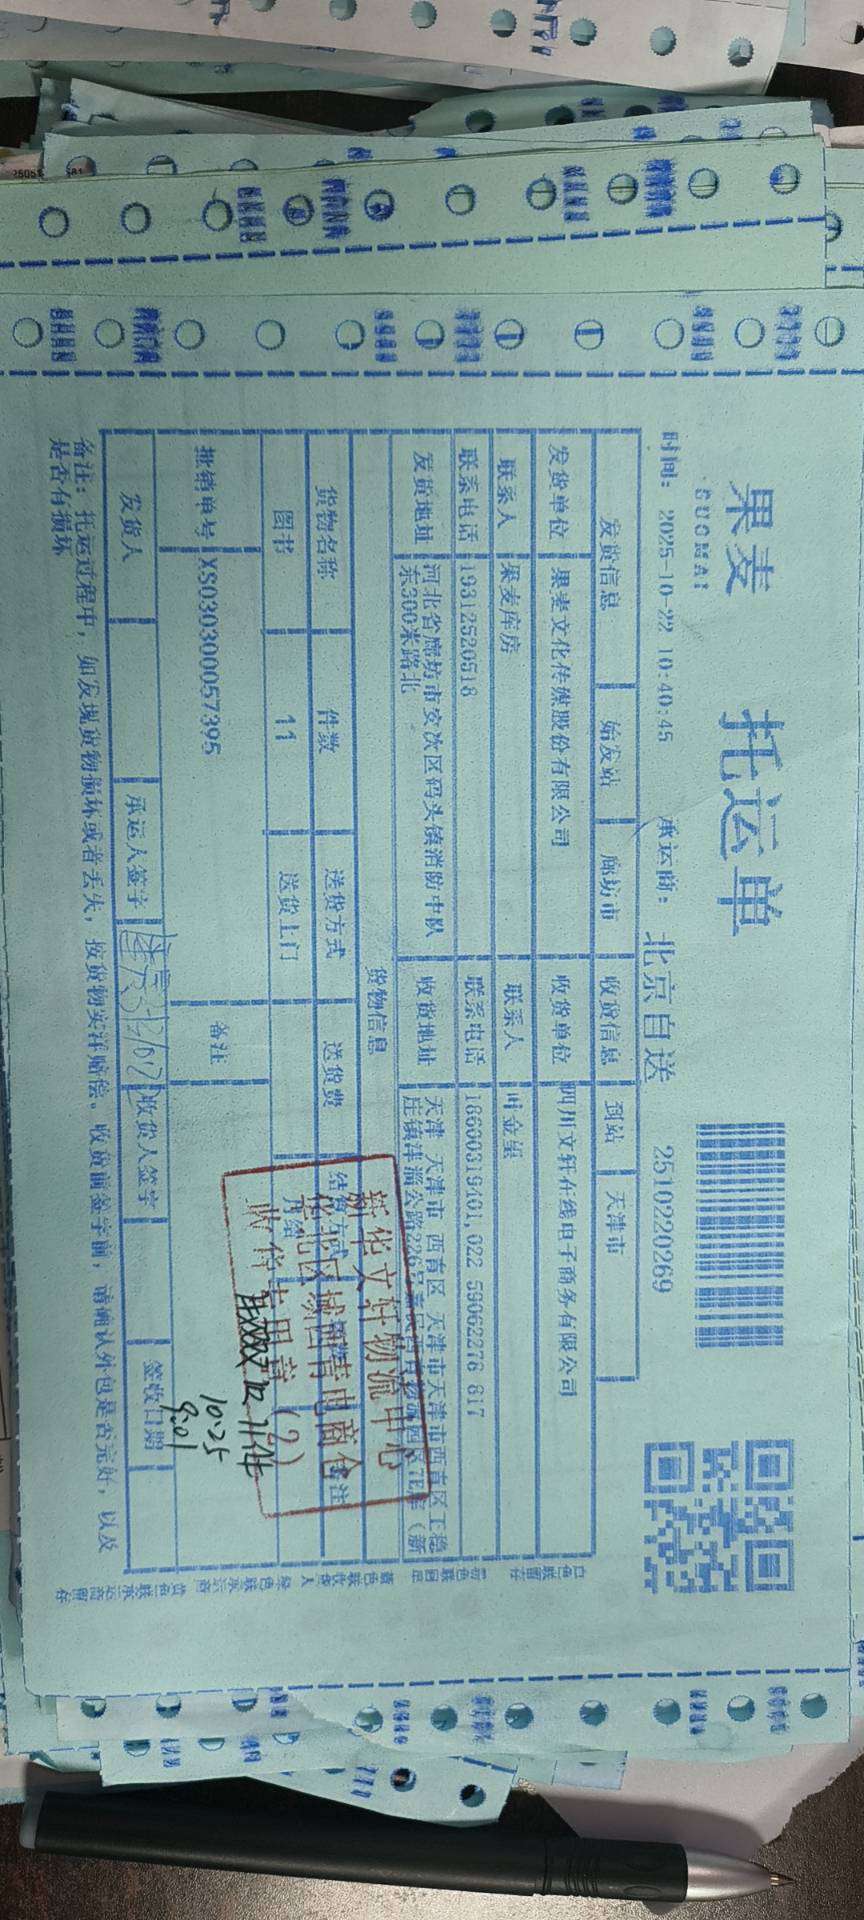 果麦
GUOMAI
托运单
时间: 2025-10-22 10:40:45
承运商: 北京自送
2510220269
发货信息 始发站 廊坊市 收货信息 到站 天津市
发货单位 果麦文化传媒股份有限公司 收货单位 四川文轩在线电子商务有限公司
联系人 果麦库房 联系人 叶金星
联系电话 19312520518 联系电话 18600319401,022 59062278 817
发货地址 河北省廊坊市安次区码头镇消防中队
东300米路北
收货地址 天津 天津市 西青区 天津市天津市西青区王稳
庄镇津淄公路226号
货物信息
货物名称 件数 送货方式 送货费 结算方式 备注
图书 11 送货上门 月结
批销单号 XS030300057395 备注
发货人 承运人签字 收货人签字 签收日期
备注: 托运过程中, 如发现货物损坏或者丢失, 按货物实洋赔偿。收货前签字前, 请确认外包是否完好, 以及
是否有损坏
新华文轩物流中心
华北区域西青电商仓
收货专用章(2)
10.25
9:01